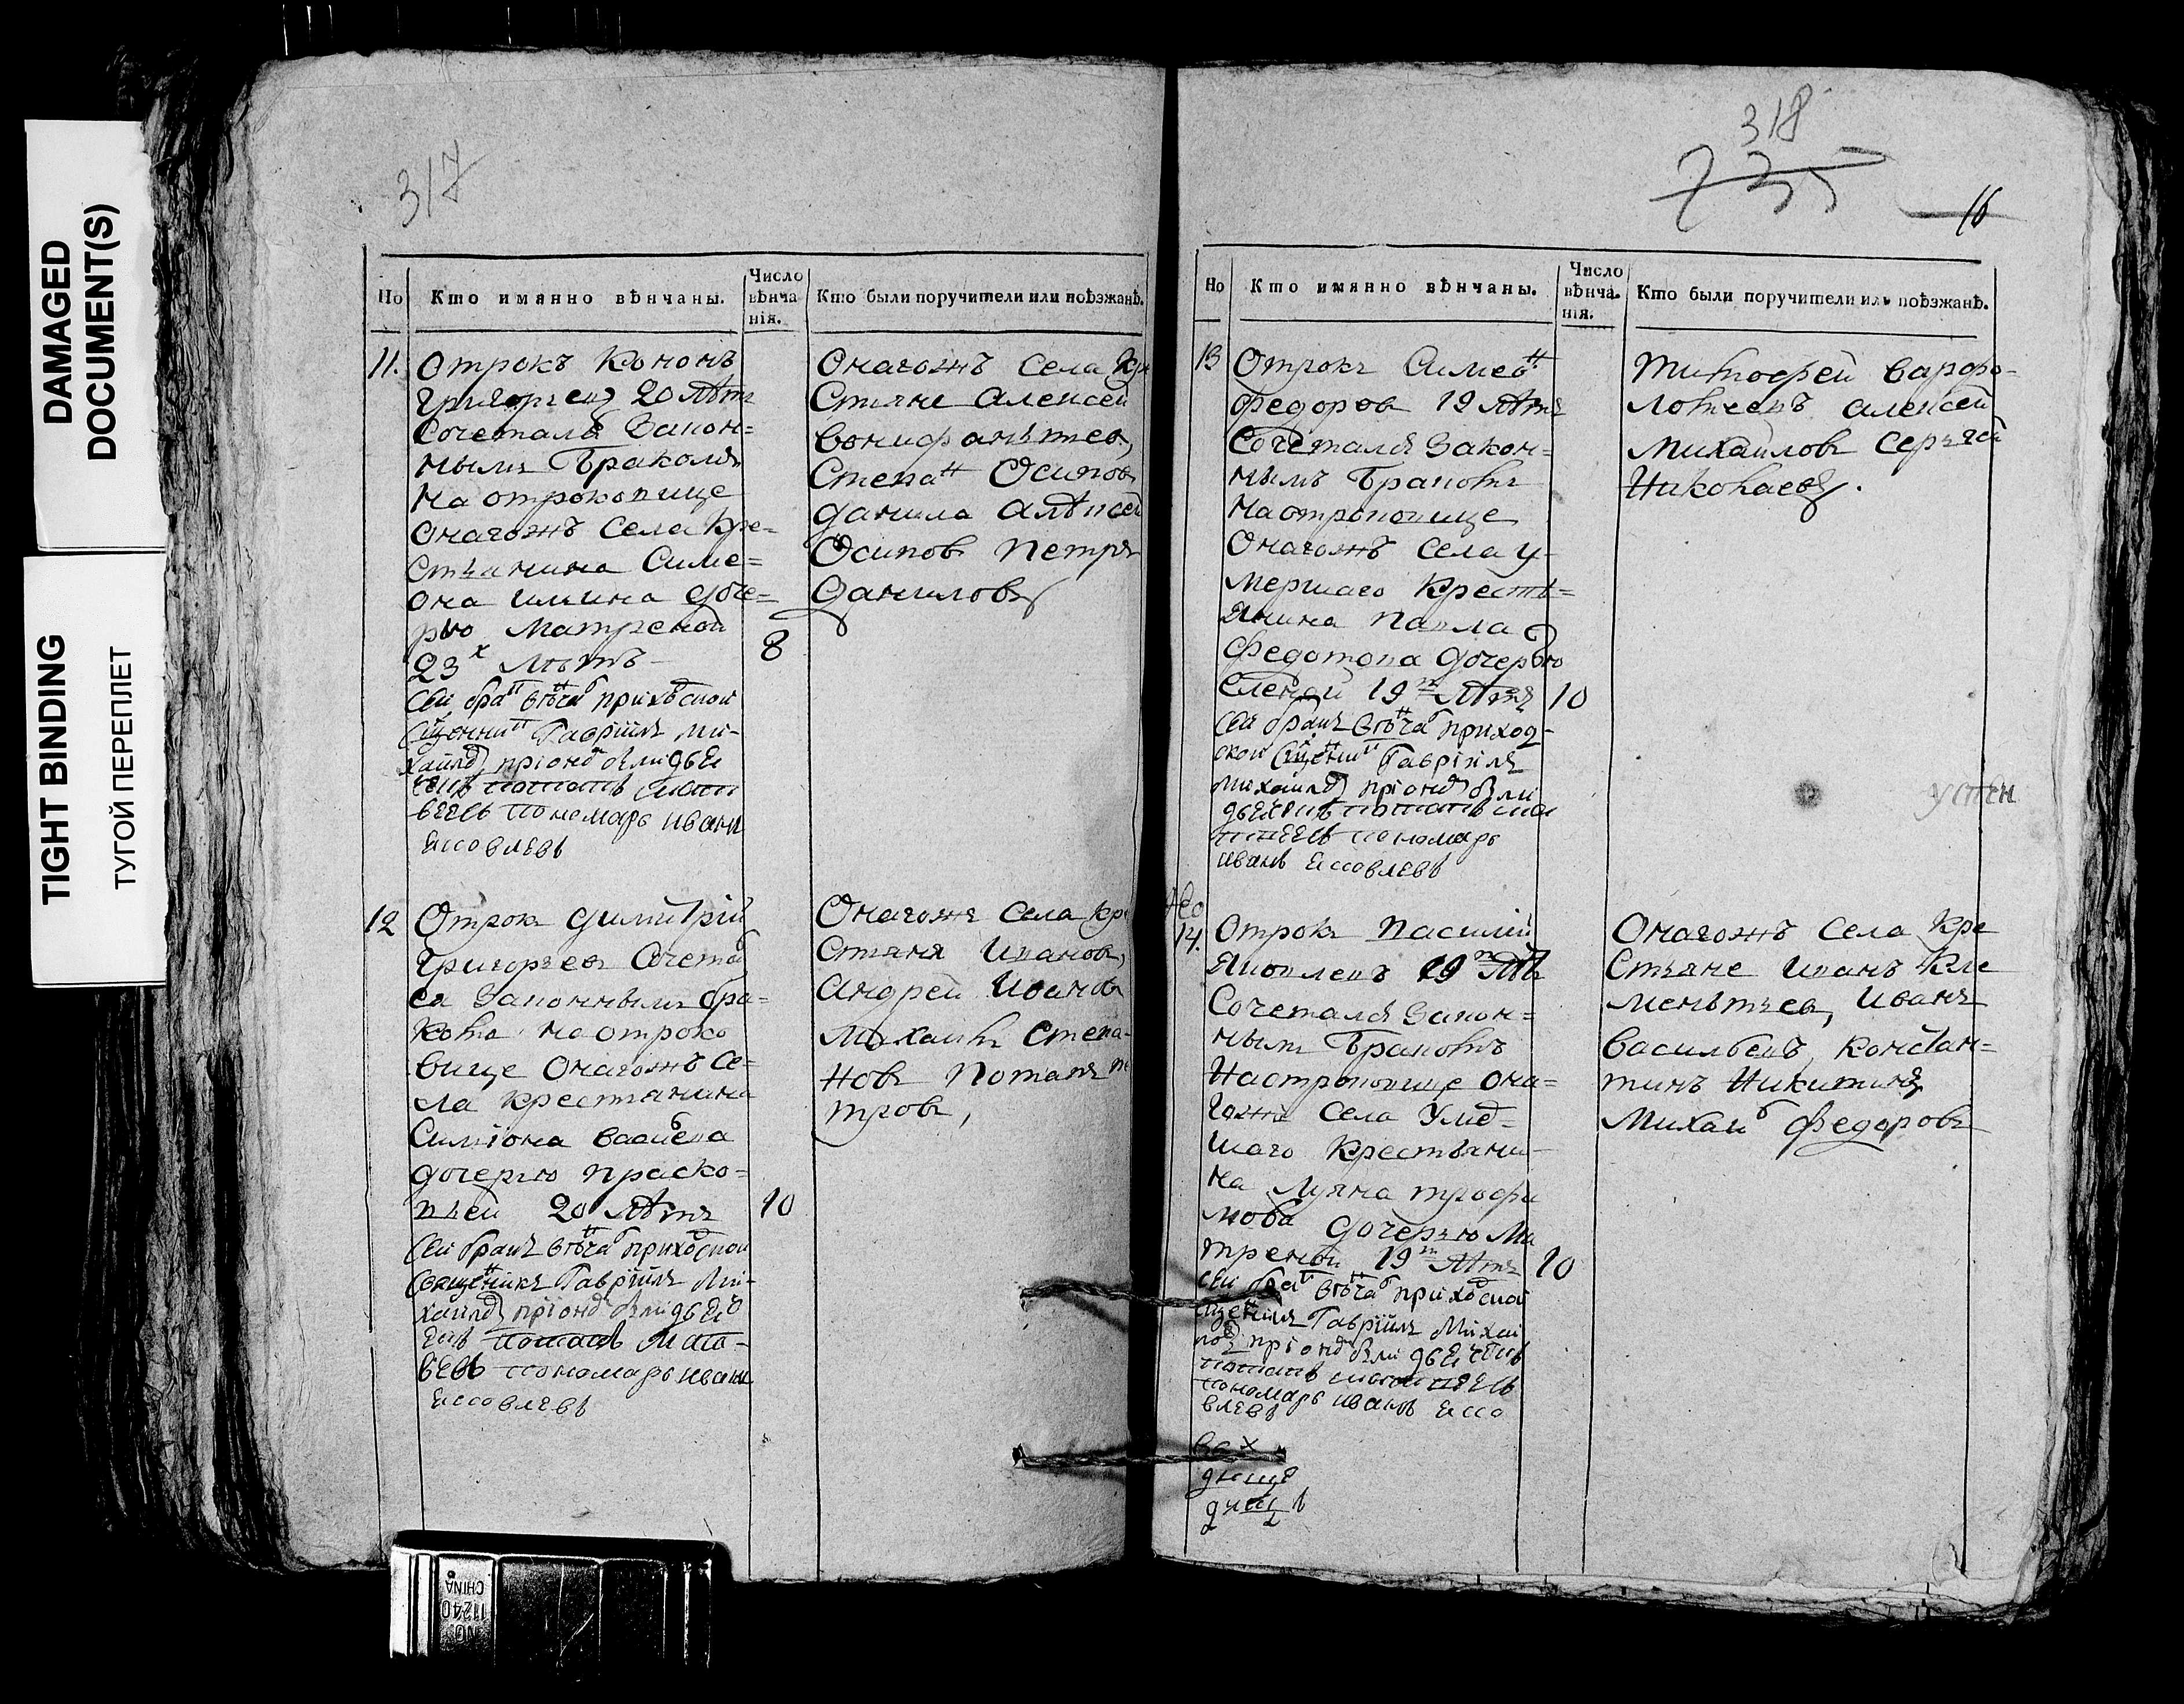 DAMAGED
DOCUMENT(S)
TIGHT BINDING
ТУГОЙ ПЕРЕПЛЕТ
317
Но
Кто имянно вѣнчаны.
Число
вѣнча
нія.
Кто были поручители или поѣзжанѣ.
11.
Отрокъ Кононъ
Григорьевъ 20 лѣтъ
Сочетался Закон=
нымъ Бракомъ
На отроковице
Онагожъ Села Кре-
стьянина Симе=
она Ильина доче=
рью Матреной
23х лѣтъ
8
Сей бракъ вѣнча приходской
Священникъ Гавріилъ Ми-
хайлов при онд были дьяч
Потапъ Мат
вѣевъ пономарь Иванъ
Яковлевъ
Онагожъ Села Кр
Стьяне Алексей
Вонифантьев,
Степан Осипов
Данила Алѣксей
Осипов Петръ
Данилов
12
Отрок Димитрій
Григорьев Сочетал
ся Законнымъ бра=
комъ на отроко
вице Онагожъ Се-
ла крестьянина
Симіона Василева
дочерью Праско=
вьей 20 лѣтъ
10
Сей бракъ вѣнча приходской
Священникъ Гавріилъ Ми-
хайлов при онд были дьяч
Потапъ Мат-
вѣевъ пономарь Иванъ
Яковлевъ
Онагожъ Села Кр
Стьяня Иванов,
Андрей Иванов
Михаилъ Степа-
нов Потапъ
тров,
318
735
16
Но
Кто имянно вѣнчаны.
Число
вѣнча.
нія.
Кто были поручители или поѣзжанѣ.
13
Отрокъ Симеон
Федоров 19 лѣтъ
Сочетался Закон=
нымъ Бракомъ
На отроковице
Онагожъ Села у-
мершаго Кресть=
янина Павла
Федотова Дочерью
Еленой 19 лѣтъ
10
Сей бракъ вѣнча приход-
ской Священник Гавріилъ
Михайлов при онд были
Потапъ Мат
вѣевъ пономарь
Иванъ Яковлевъ
Тимофей Варфо-
ломеевъ Алексей
Михайловъ Сергей
Николаев.
устен
14.
Отрокъ Василий
Яковлевъ 19 лѣт
Сочетался Закон=
нымъ Бракомъ
На отроковице она=
гожъ Села Умер-
шаго Крестьяни-
на Лукяна Трофи
мова Дочерью Ма
треной 19 лѣтъ
10
Сей бра вѣнча приходской
Гавріилъ Михай
лов при онд были дьяч
Потапъ Матвѣевъ
пономарь Иванъ Яко
влевъ
Онагожъ Села Кре
Стьяне Иванъ Кле
ментьев, Иванъ
Васильевъ, Констан=
тинъ Никитинъ
Михаил Федоровъ
NO.
11240
CHINA